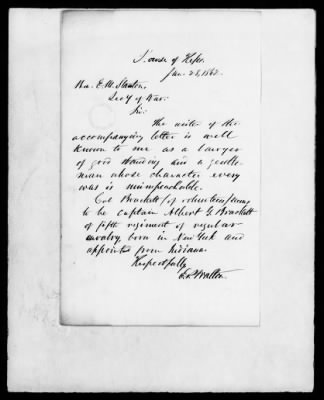 House of Reps.
Jan. 28, 1862.
Hon. E. M. Stanton,
Sec'y of War:
Sir:
The writer of the
accompanying letter is well
known to me as a lawyer
of good standing and a gentle-
man whose character every
way is unimpeachable.
Col Brackett (of volunteers)
to be captain Albert G. Brackett
of fifth regiment of regular
cavalry, born in New York and
appointed from Indiana.
Respectfully
E. P. Walton